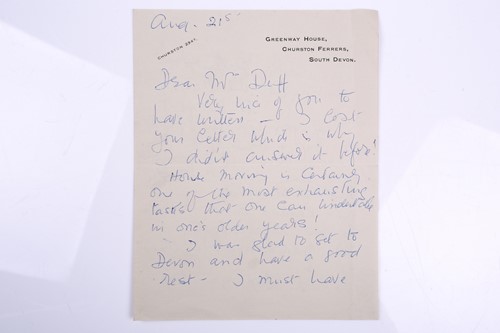 Aug. 21st
GREENWAY HOUSE,
CHURSTON FERRERS,
SOUTH DEVON.
CHURSTON 2941
Dear Mrs Duff
Very nice of you to
have written — I lost
your letter which is why
I didn't answer it before!
House Moving is certainly
one of the most exhausting
tasks that one can undertake
in one's older years!
I was glad to get to
Devon and have a good
rest — I must have